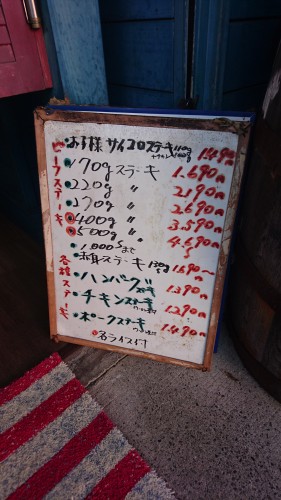 ビーフステーキ
お子様 サイコロステーキ 110g 1.490円
170gステーキ 1.690円
220g 〃 2.190円
270g 〃 2.690円
400g 〃 3.590円
500g 〃 4.690円
1,000gまで
各種ステーキ
赤身ステーキ 130g 1.690〜円
ハンバーグ 1.390円
チキンステーキ 1.290円
ポークステーキ 1.490円
各ライス付